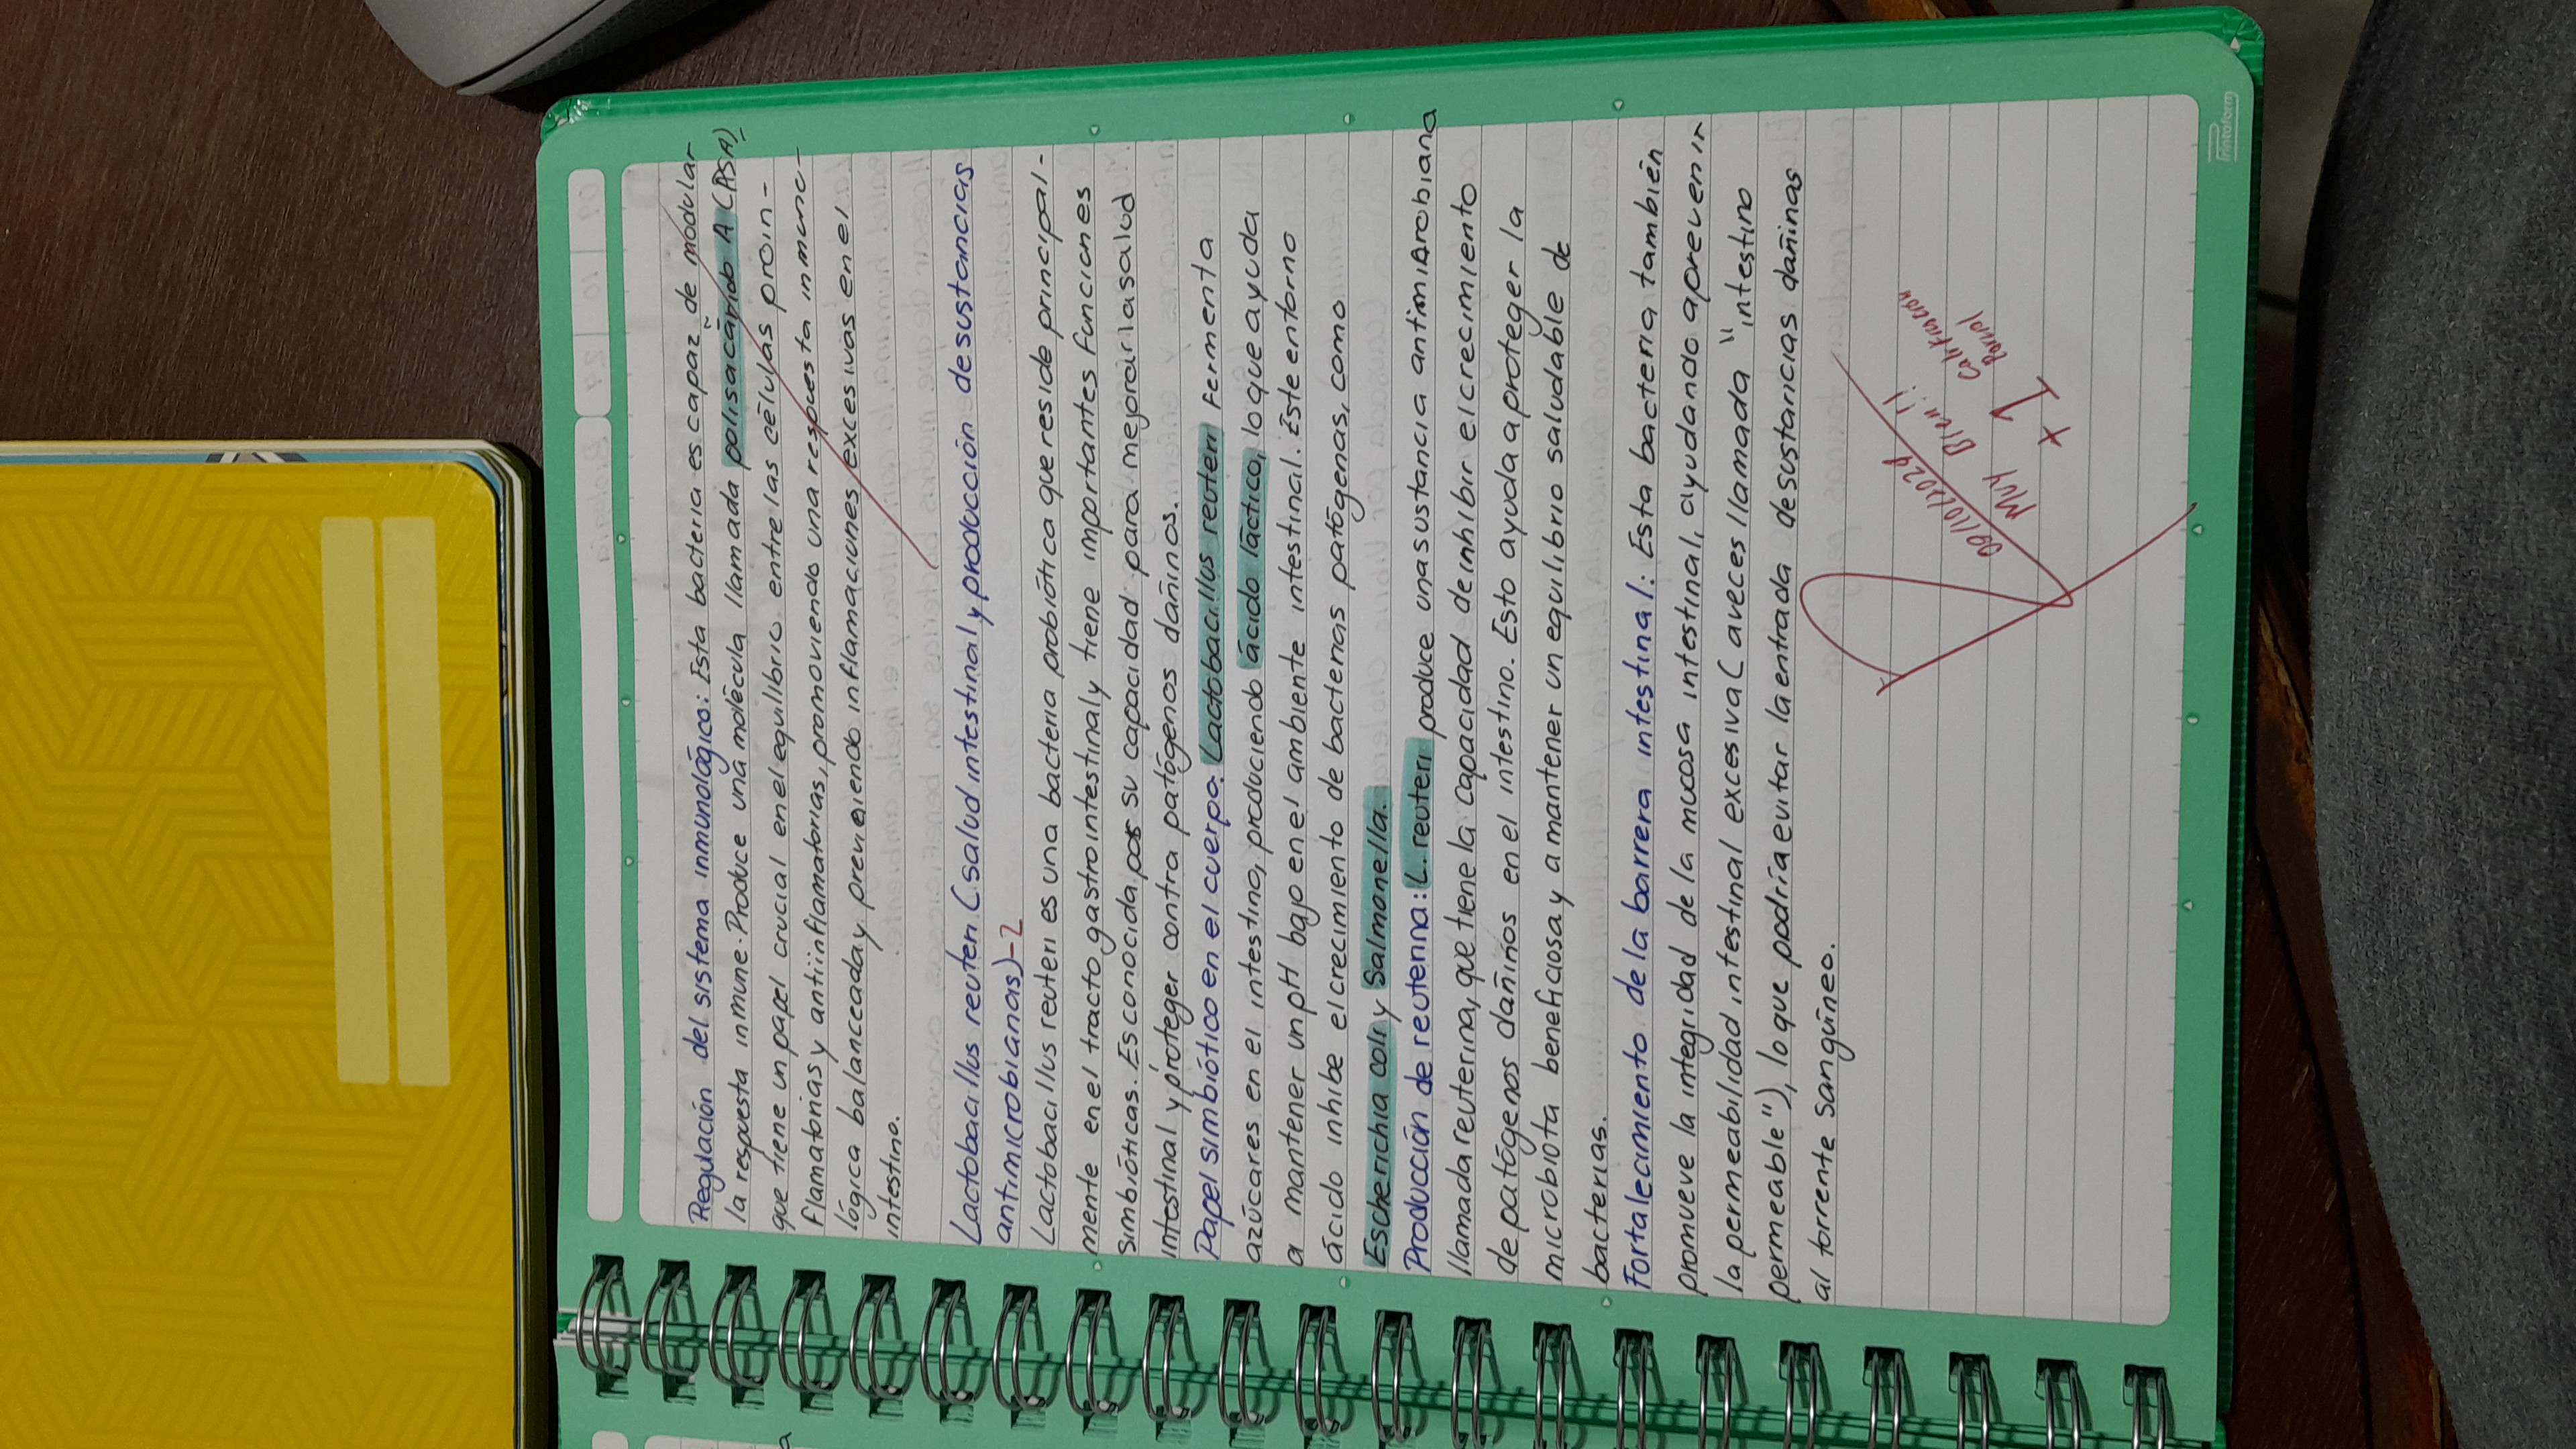 Regulación del sistema inmunológico: Esta bacteria es capaz de modular
la respuesta inmune. Produce una molécula llamada polisacárido A (PSA),
que tiene un papel crucial en el equilibrio entre las células proin-
flamatorias y antiinflamatorias, promoviendo una respuesta inmuno-
lógica balanceada y previniendo inflamaciones excesivas en el
intestino.
Lactobacillus reuteri (salud intestinal y producción de sustancias
antimicrobianas)-2
Lactobacillus reuteri es una bacteria probiótica que reside principal-
mente en el tracto gastrointestinal y tiene importantes funciones
simbióticas. Es conocida por su capacidad para mejorar la salud
intestinal y proteger contra patógenos dañinos.
Papel simbiótico en el cuerpo: Lactobacillus reuteri fermenta
azúcares en el intestino, produciendo ácido láctico, lo que ayuda
a mantener un pH bajo en el ambiente intestinal. Este entorno
ácido inhibe el crecimiento de bacterias patógenas, como
Escherichia coli y Salmonella.
Producción de reuterina: L. reuteri produce una sustancia antimicrobiana
llamada reuterina, que tiene la capacidad de inhibir el crecimiento
de patógenos dañinos en el intestino. Esto ayuda a proteger la
microbiota beneficiosa y a mantener un equilibrio saludable de
bacterias.
Fortalecimiento de la barrera intestinal: Esta bacteria también
promueve la integridad de la mucosa intestinal, ayudando a prevenir
la permeabilidad intestinal excesiva (a veces llamada "intestino
permeable"), lo que podría evitar la entrada de sustancias dañinas
al torrente sanguíneo.
09/10/2024
Muy Bien!!
+1 Calificación
Parcial
Printaform